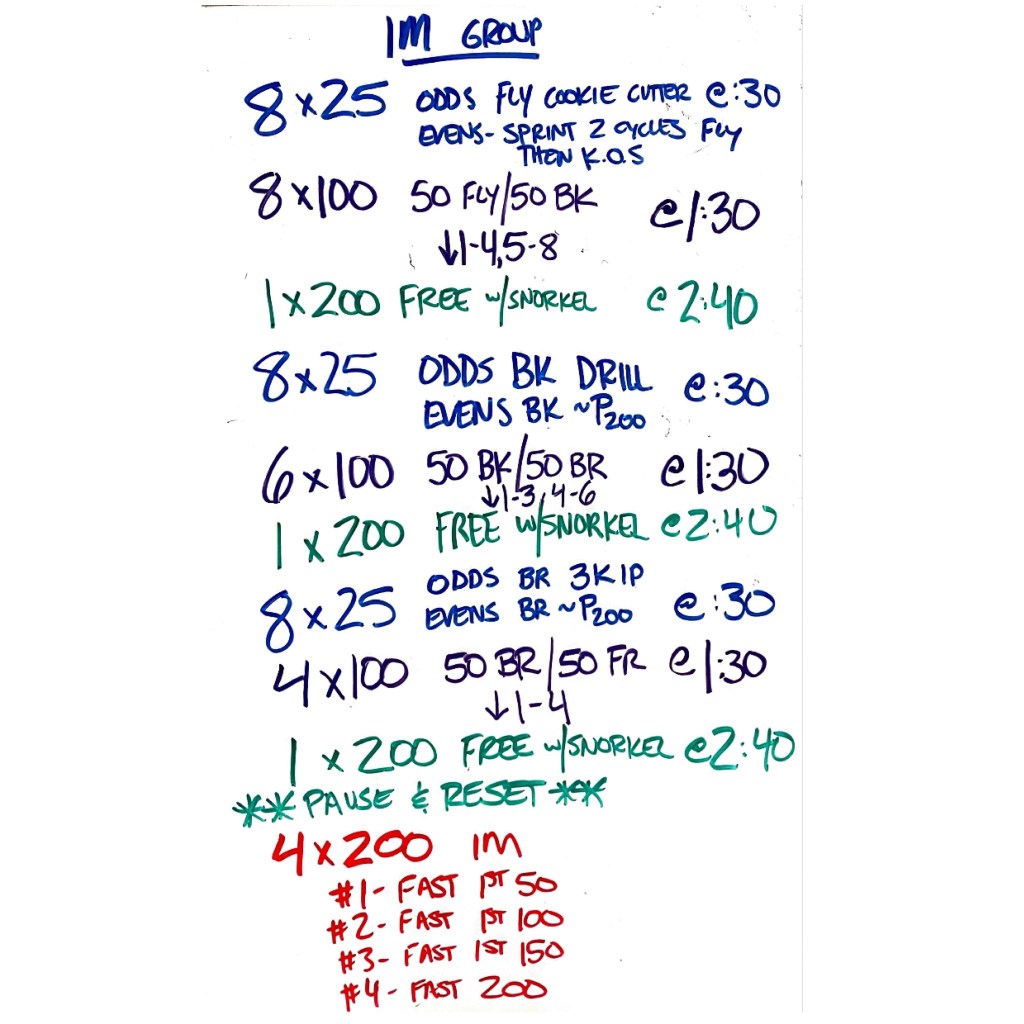 IM GROUP
8x25 ODDS FLY COOKIE CUTTER @:30
EVENS- SPRINT 2 CYCLES FLY
THEN K.O.S
8x100 50 FLY/50 BK @1:30
↓1-4,5-8
1x200 FREE w/SNORKEL @2:40
8x25 ODDS BK DRILL @:30
EVENS BK ~P200
6x100 50 BK/50 BR @1:30
↓1-3,4-6
1x200 FREE w/SNORKEL @2:40
ODDS BR 3K1P
8x25 EVENS BR ~P200 @:30
4x100 50 BR/50 FR @1:30
↓1-4
1x200 FREE w/SNORKEL @2:40
** PAUSE & RESET **
4x200 IM
#1- FAST 1ST 50
#2- FAST 1ST 100
#3- FAST 1ST 150
#4- FAST 200